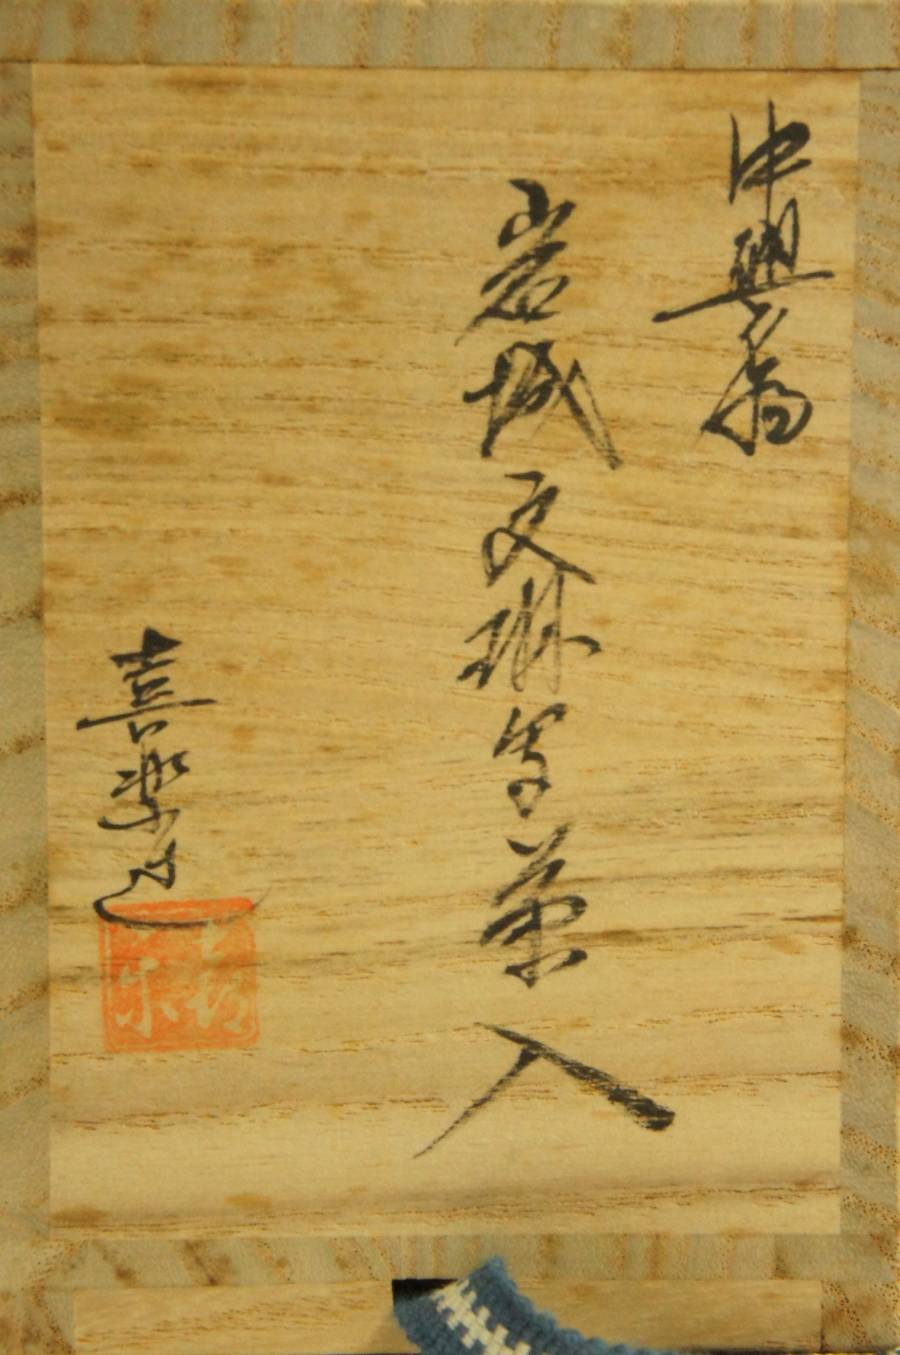 中興名物
岩城文琳写茶入
喜楽造
喜楽